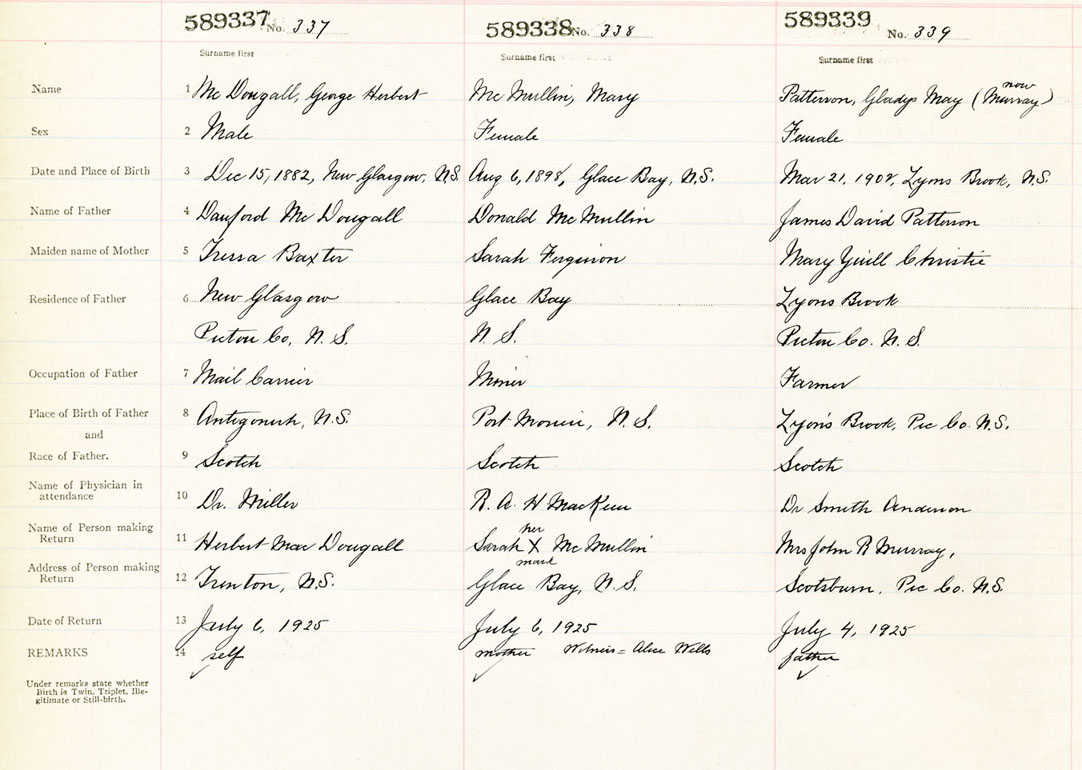 589337 No. 337 589338 No. 338 589339 No. 339
Surname first Surname first Surname first
Name 1 Mc Dougall, George Herbert Mc Mullin, Mary Patterson, Gladys May (now Murray)
Sex 2 Male Female Female
Date and Place of Birth 3 Dec 15, 1882, New Glasgow, N.S. Aug 6, 1898, Glace Bay, N.S. Mar 21, 1902, Lyons Brook, N.S.
Name of Father 4 Danford Mc Dougall Donald Mc Mullin James David Patterson
Maiden name of Mother 5 Baxter Sarah Ferguson Mary Yuill Christie
Residence of Father 6 New Glasgow Glace Bay Lyons Brook
Pictou Co, N.S. N.S. Pictou Co. N.S.
Occupation of Father 7 Mail Carrier Miner Farmer
Place of Birth of Father 8 Antigonish, N.S. Port Morien, N.S. Lyon's Brook, Pic Co. N.S.
and
Race of Father. 9 Scotch Scotch Scotch
Name of Physician in
attendance 10 Dr. Miller R. A. H MacKeen Dr Smith Anderson
Name of Person making
Return 11 Herbert Mac Dougall Sarah her X mark Mc Mullin Mrs John R Murray,
Address of Person making
Return 12 Trenton, N.S. Glace Bay, N.S. Scotsburn, Pic Co. N.S.
Date of Return 13 July 6, 1925 July 6, 1925 July 4, 1925
REMARKS 14 self mother Witness = Alice Wells father
Under remarks state whether
Birth is Twin, Triplet, Ille-
gitimate or Still-birth.